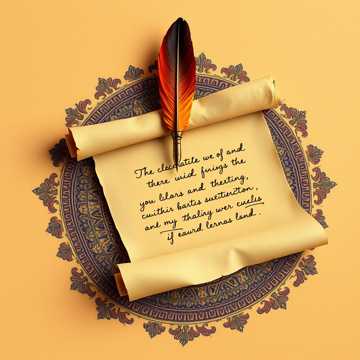 The clecatite we of and
there wid furigs the
you lilors and therting,
cwithis bartis suetierzton,
and my thaliry wer cuelis
if eaurd lernas lond.